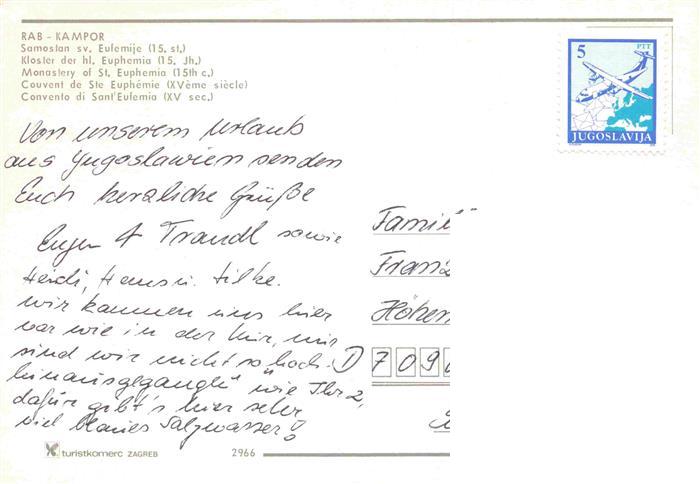 RAB - KAMPOR
Samostan sv. Eufemije (15. st.)
Kloster der hl. Euphemia (15. Jh.)
Monastery of St. Euphemia (15th c.)
Couvent de Ste Euphémie (XVème siècle)
Convento di Sant'Eufemia (XV sec.)
5 PTT
JUGOSLAVIJA
Von unserem Urlaub
aus Jugoslawien senden
Euch herzliche Grüße
Eugen + Traudl sowie
Heidi, Hans u. Silke.
Wir kamen uns hier
vor wie in der Kur, nur
sind wir nicht so hoch
hinausgegangen wie Ihr 2,
dafür gibt's hier sehr
viel blaues Salzwasser!
Famil
Franz
Höhen
D 709
turistkomerc ZAGREB
2966